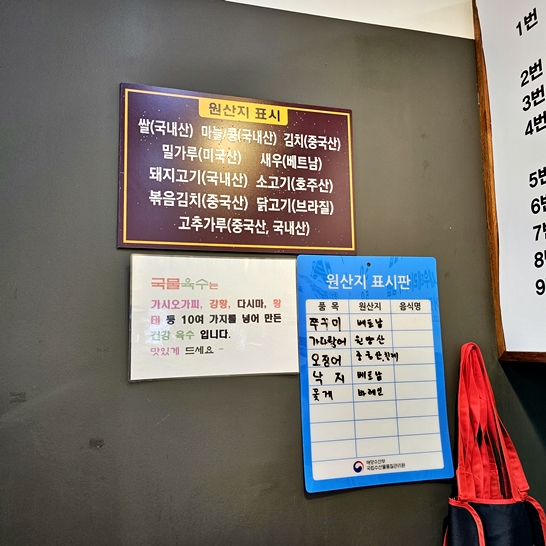 원산지 표시
쌀(국내산) 마늘/콩(국내산) 김치(중국산)
밀가루(미국산) 새우(베트남)
돼지고기(국내산) 소고기(호주산)
볶음김치(중국산) 닭고기(브라질)
고추가루(중국산, 국내산)
국물육수는
가시오가피, 강황, 다시마, 황
태 등 10여 가지를 넣어 만든
건강 육수 입니다.
맛있게 드세요~
원산지 표시판
품 목 원산지 음식명
쭈꾸미 베트남
가다랑어 원양산
오징어 중국산,
낙지 베트남
꽃게 바레인
해양수산부
국립수산물품질관리원
1번
2번
3번
4번
5번
6번
7번
8번
9